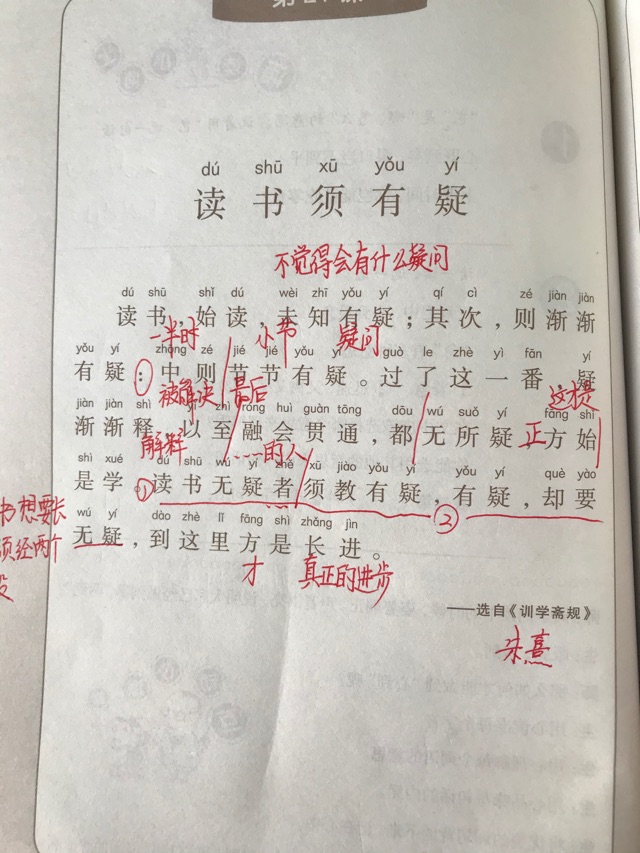 dú shū xū yǒu yí
读书须有疑
不觉得会有什么疑问
dú shū shǐ dú wèi zhī yǒu yí qí cì zé jiàn jiàn
读书,始读,未知有疑;其次,则渐渐
一半时 小节 疑问
yǒu yí zhōng zé jié jié yǒu yí guò le zhè yì fān yí
有疑;中则节节有疑。过了这一番,疑
被解决 最后 这才是
jiàn jiàn shì yǐ zhì róng huì guàn tōng dōu wú suǒ yí fāng shǐ
渐渐释,以至融会贯通,都无所疑,方始
解释 ……的人 正
shì xué dú shū wú yí zhě xū jiào yǒu yí yǒu yí què yào
是学。①读书无疑者须教有疑,有疑,却要
书想要长
须经两个
②
wú yí dào zhè lǐ fāng shì zhǎng jìn
无疑,到这里方是长进。
才 真正的进步
——选自《训学斋规》
朱熹